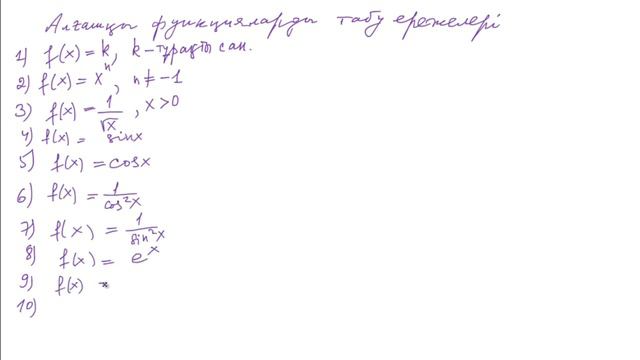 Алғашқы функцияларды табу ережелері
1) f(x) = k, k - тұрақты сан.
2) f(x) = xⁿ, n ≠ -1
3) f(x) = 1/√x, x > 0
4) f(x) = sinx
5) f(x) = cosx
6) f(x) = 1/cos²x
7) f(x) = 1/sin²x
8) f(x) = eˣ
9) f(x) =
10)